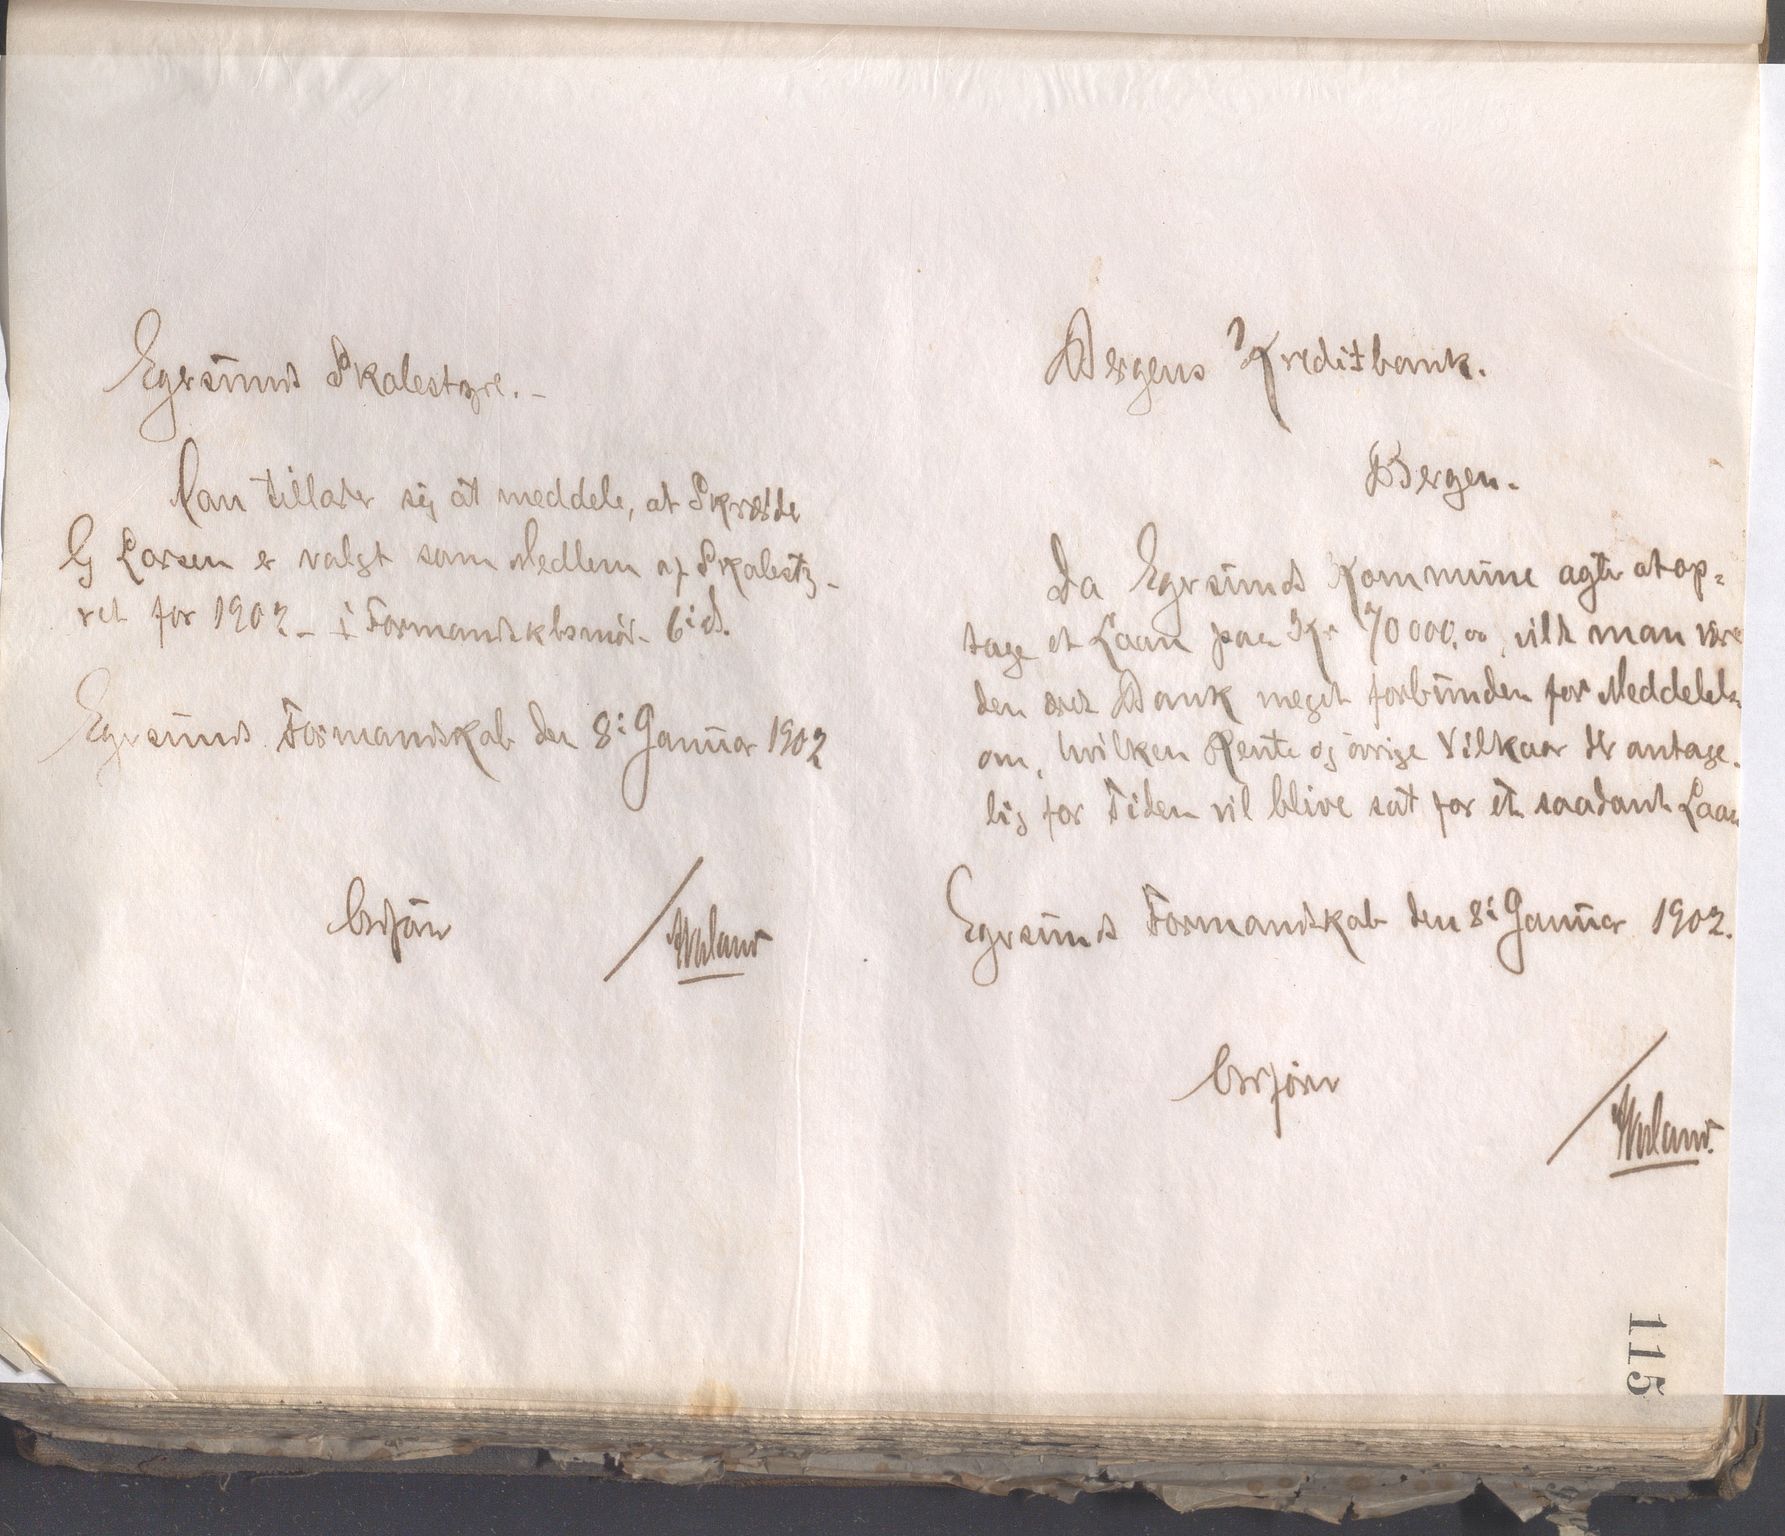 Egersunds Skolestyre. -
Man tillader sig at meddele, at Skrædder
G Larsen er valgt som Medlem af Skolesty-
ret for 1902 - i Formandskbsmøde 6: ds.
Egersunds Formandskab den 8: Januar 1902
Ærbør
Bergens Kreditbank.
Bergen.
Da Egersunds Kommune agter at op-
tage et Laan paa Kr 70000.00, vilde man være
den ærede Bank meget forbunden for Meddelelse
om, hvilken Rente og øvrige Vilkaar der antage-
lig for Tiden vil blive sat for et saadant Laan
Egersunds Formandskab den 8: Januar 1902.
115